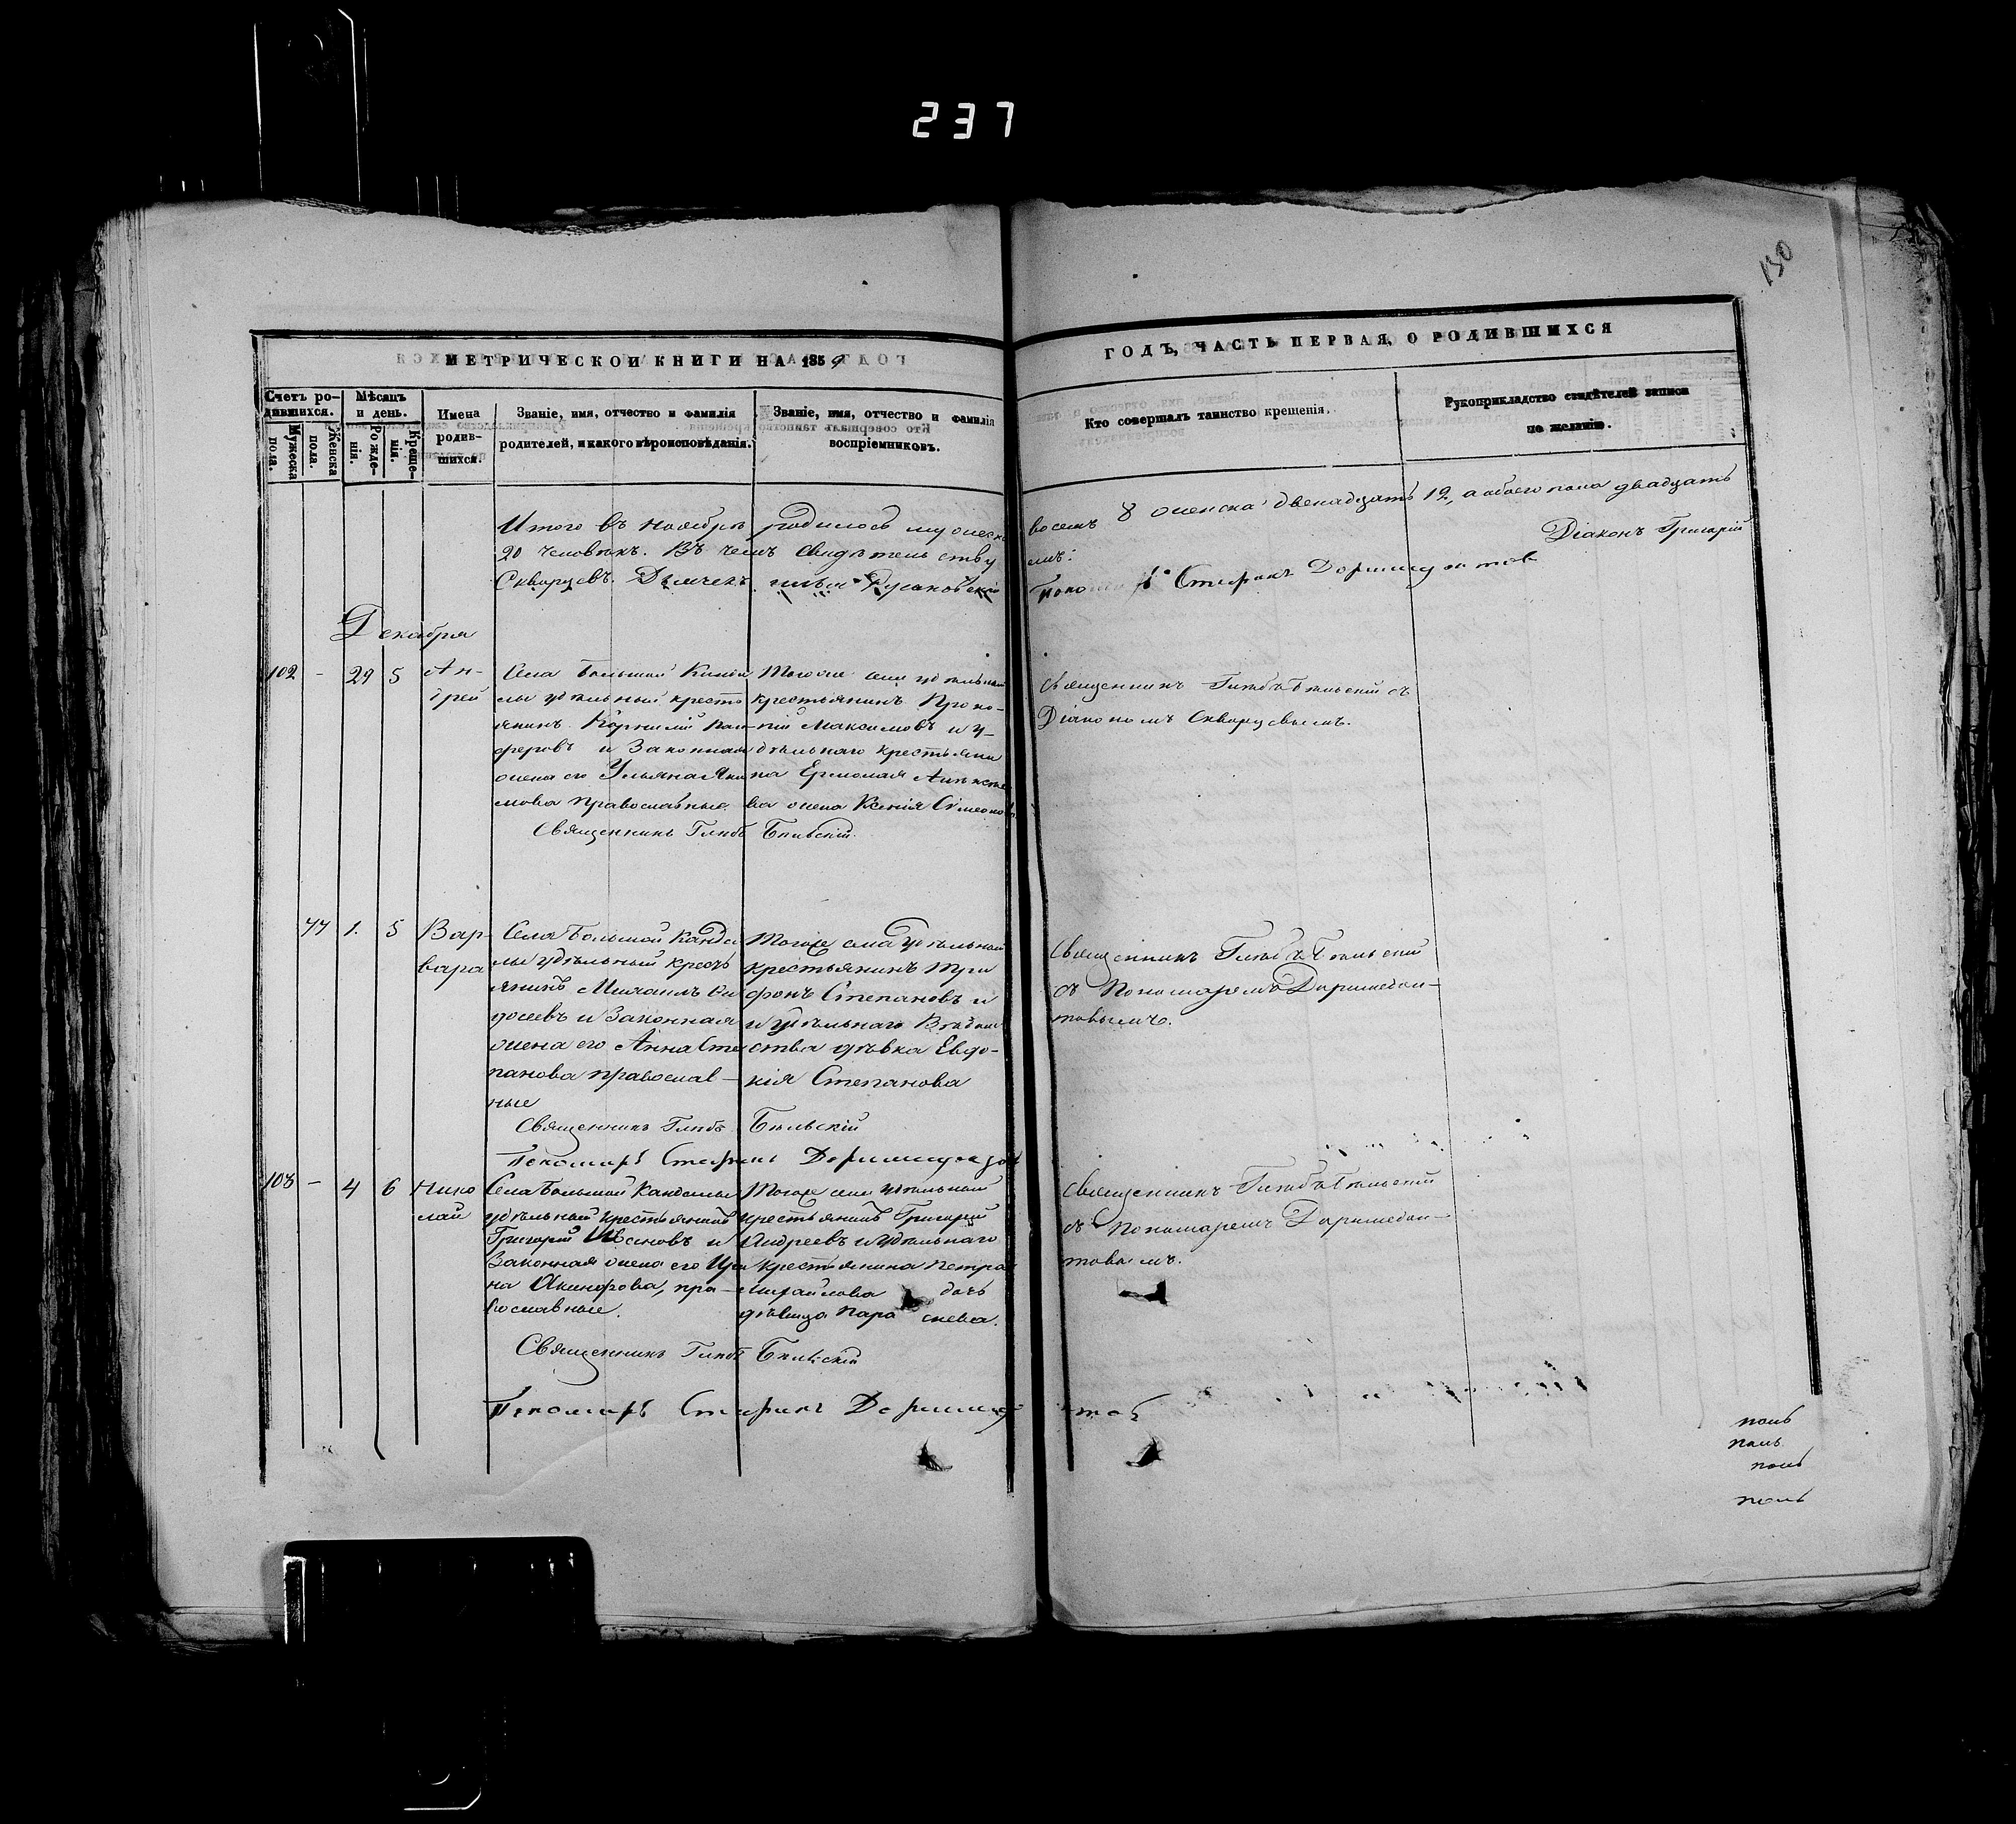 237
130
МЕТРИЧЕСКОЙ КНИГИ НА 1859
ГОДЪ, ЧАСТЬ ПЕРВАЯ, О РОДИВШИХСЯ
Счетъ ро-
дившихся.
Мужеска пола.
Женска пола.
Мѣсяцъ
и день.
Рожде-
нія.
Креще-
нія.
Имена
родив-
шихся.
Званіе, имя, отчество и фамилія
родителей, и какого вѣроисповѣданія.
Званіе, имя, отчество и фамилія
воспріемниковъ.
Кто совершалъ таинство крещенія.
Рукоприкладство свидѣтелей записи
по желанію.
Итого въ ноябрѣ родилось мужеска восемь 8 женска двенадцать 12, а обоего пола двадцать
20 человѣкъ. Въ чемъ свидѣтельству емъ: Діаконъ Григорій
Скворцевъ. Дьячекъ Пономарь Стефанъ
Декабря
102 - 29 5
Ан-
дрей
Села Большой Канда
лы удѣльный кресть
янинъ Корнилій
и Законная
жена его Ульяна Яки
мова православные.
Тогоже села удѣльный
крестьянинъ Проко-
пій Максимовъ и у-
дѣльнаго крестьяни
на Ермолая Алексѣе
ва жена Ксенія Симеонова
Священникъ Глѣбъ Бѣльскій.
Священникъ Глѣбъ Бѣльскій съ
Діакономъ Скворцевымъ.
77 1. 5
Вар-
вара
Села Большой Канда
лы удѣльный кресть
янинъ Михаилъ
и Законная
жена его Анна Сте
панова православ-
ные
Тогоже села удѣльный
крестьянинъ Три
фонъ Степановъ и
и удѣльнаго Вѣдом
ства дѣвка Евдо-
кія Степанова
Священникъ Глѣбъ Бѣльскій
Пономарь Стефанъ
Священникъ Глѣбъ Бѣльскій
съ Пономаремъ Доримедон-
товымъ.
103 - 4 6
Нико
лай
Села Большой Кандалы
удѣльный крестьянинъ
Григорій Ивановъ и
Законная жена его Ири
на Акинфова, пра-
вославные.
Тогоже села удѣльный
крестьянинъ Григорій
Андреевъ и удѣльнаго
крестьянина Петра
Михайлова дочь
дѣвица Пара скева.
Священникъ Глѣбъ Бѣльскій
Пономарь Стефанъ
Священникъ Глѣбъ Бѣльскій
съ Пономаремъ Доримедон-
товымъ.